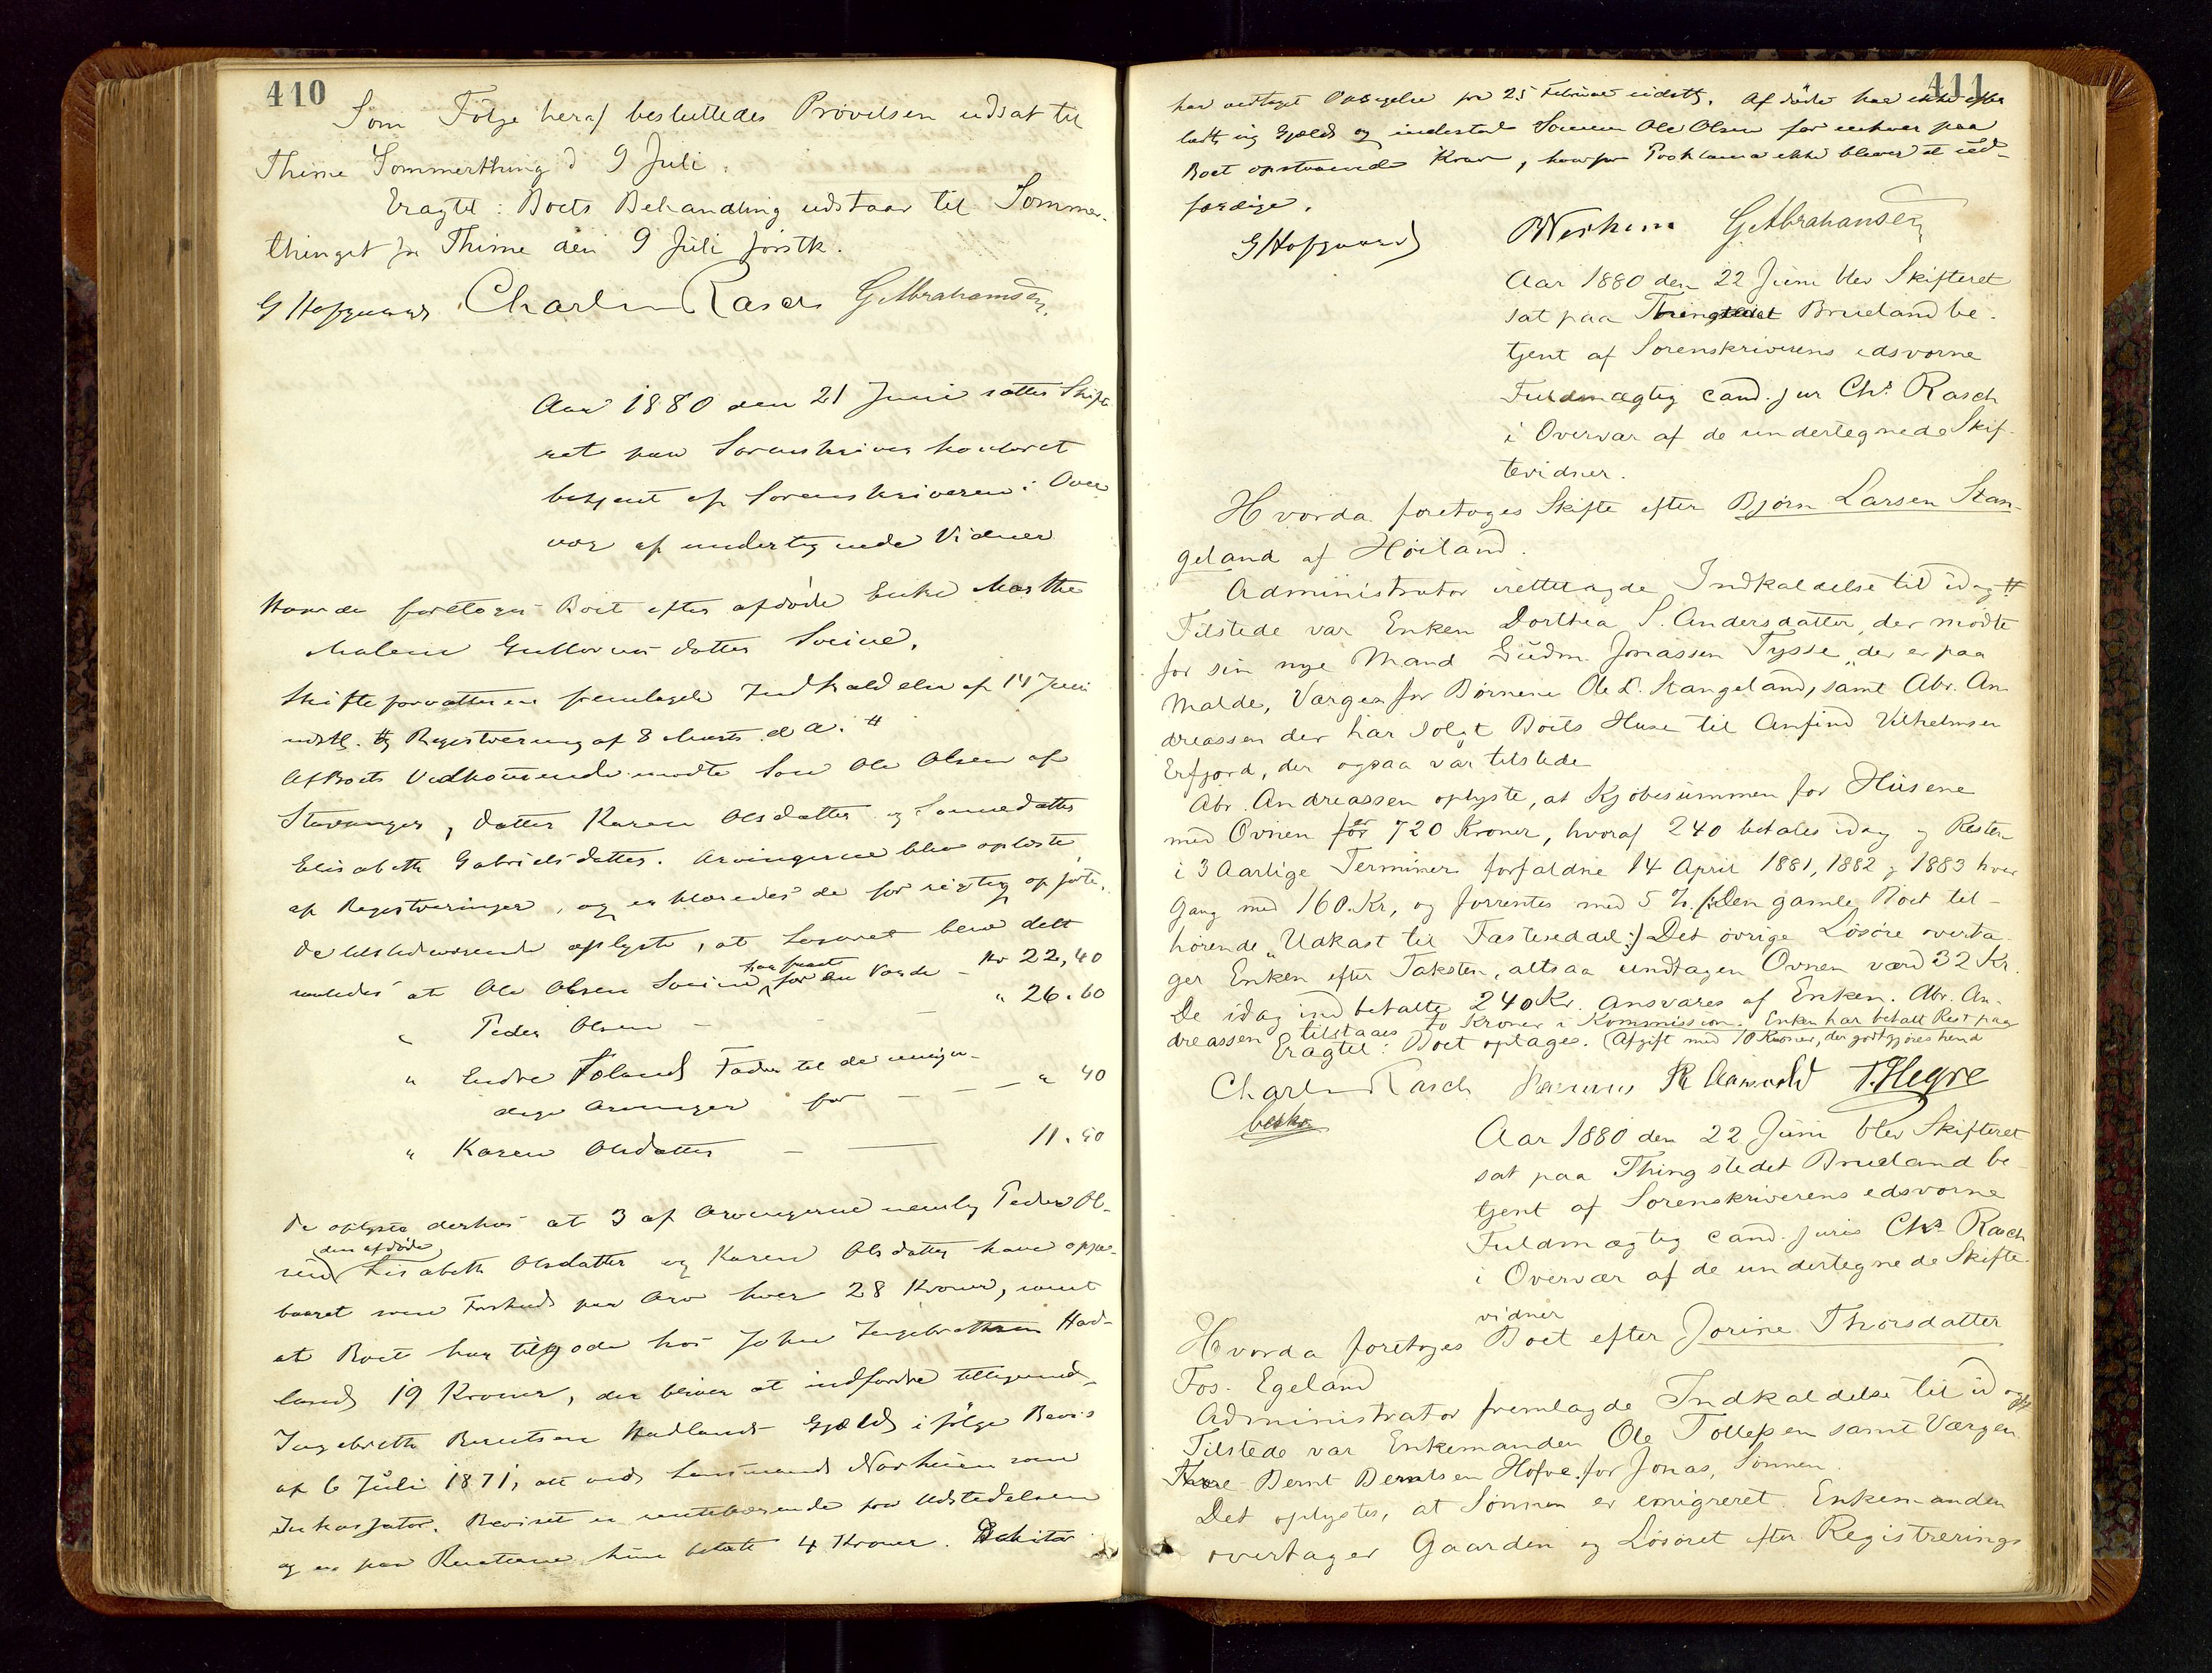 410
Som Følge heraf besluttedes Prøvelsen udsat til
Thime Sommerthing d 9 Juli.
Eragtet: Boets Behandling udstaar til Sommer-
thinget for Thime den 9 Juli førstk.
G Hofgaard Charles Rasch G Abrahamsen.
Aar 1880 den 21 Juni sattes Skifte-
ret paa Sorenskriverkontoret
betjent af Sorenskriveren i Over
vær af undertegnede Vidner
Hvorda foretoges Boet efter afdøde Enke Marthe
Malene Guttormsdatter
Skifteforvalteren fremlagde Indkaldelse af 14 Juni
sidstl. og Registrering af 8 Marts d. A. #
Af Boets Vedkommende mødte Søn Ole Olsen af
Stavanger, Datter Karen Olsdatter og Sønnedatter
Elisabeth Gabrielsdatter. Arvingerne blev oplæste
af Registreringen, og erklæredes de for rigtig opførte.
De tilstedeværende oplyste, at Løsøret blev delt
saaledes at Ole Olsen har faaet for en Værdi - Kr 22,40
" Peder Olsen - - - " 26.60
" Endre Føland Fader til de umyn-
dige Arvinger for - - - " 40
" Karen Olsdatter - - 11.50
De oplyste derhos at 3 af Arvingerne nemlig Peder Ol-
sen den afdøde Lisabeth Olsdatter og Karen Olsdatter have oppe-
baaret som Forskud paa Arv hver 28 Kroner, samt
at Boet har tilgode hos John Ingebretsen Had-
land 19 Kroner, der bliver at indfordre tilligemed
Ingebreth Berntsen Hadlands Gjæld ifølge Bevis
af 6 Juli 1871, alt ved Lensmand Norheim som
Inkassator. Beviset er rentebærende fra Udstedelsen
og er paa Renterne kun betalt 4 Kroner. Debitor
411
har vedtaget Opsigelse fra 25 Februar sidstl. Afdøde har ikke efter
ladt sig Gjæld og indestod Sønnen Ole Olsen for enhver paa
Boet opstaaende Krav, hvorfor Proklama ikke bliver at ud-
færdige.
G Hofgaard G Abrahamsen
Aar 1880 den 22 Juni blev Skifteret
sat paa Thingstedet Brueland be-
tjent af Sorenskriverens edsvorne
Fuldmægtig cand. jur Chs. Rasch
i Overvær af de undertegnede Skif-
tevidner.
Hvorda foretoges Skifte efter Bjørn Larsen Stan-
geland af Høiland.
Administrator irettelagde Indkaldelse til idag #
Tilstede var Enken Dorthea S. Andersdatter, der mødte
for sin nye Mand Gudm. Jonassen Tysse, der er paa
Malde, Værgen for Børnene Ole L. Stangeland, samt Abr. An-
dreassen der har solgt Boets Huse til Anfind Vilhelmsen
Erfjord, der ogsaa var tilstede
Abr. Andreassen oplyste, at Kjøbesummen for Husene
med Ovnen er 720 Kroner, hvoraf 240 betales idag og Resten
i 3 Aarlige Terminer forfaldne 14 April 1881, 1882 og 1883 hver
Gang med 160 Kr, og forrentes med 5 %. /: Den gamle Boet til-
hørende Udkast til Fæsteseddel :/ Det øvrige Løsøre overta-
ger Enken efter Taksten, altsaa undtagen Ovnen værd 32 Kr.
De idag ind betalte 240 Kr. ansvares af Enken. Abr. An-
dreassen tilstaaes 10 Kroner i Kommission. Enken har betalt Rest paa
Eragtet: Boet optages. (Afgift med 10 Kroner, der godtgjøres hende
Charles Rasch Rasmus R Aarsvold T. Hegre
beskr
Aar 1880 den 22 Juni blev Skifteret
sat paa Thingstedet Brueland be-
tjent af Sorenskriverens edsvorne
Fuldmægtig cand. juris Chs. Rasch
i Overvær af de undertegnede Skifte-
vidner
Hvorda foretoges Boet efter Jorine Thorsdatter
Fos-Egeland
Administrator fremlagde Indkaldelse til idag #
Tilstede var Enkemanden Ole Tollefsen samt Værgen
Bernt Berntsen Hofve for Jonas, Sønnen.
Det oplystes, at Sønnen er emigreret. Enkemanden
overtager Gaarden og Løsøret efter Registrerings